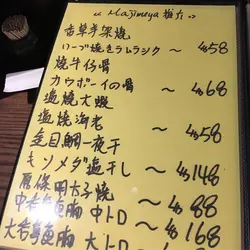 “ Majimeya 推介 ”
香草羊架燒
ハーブ焼きラムラック ～ $58
燒牛仔骨
カウボーイの骨 ～ $68
塩燒大蝦
塩焼海老 ～ $58
金目鯛一夜干
キンメダイ塩干し ～ $148
明太子焼 ～ $88
中吞拿魚腩 中トロ
大吞拿魚腩 大トロ ～ $168